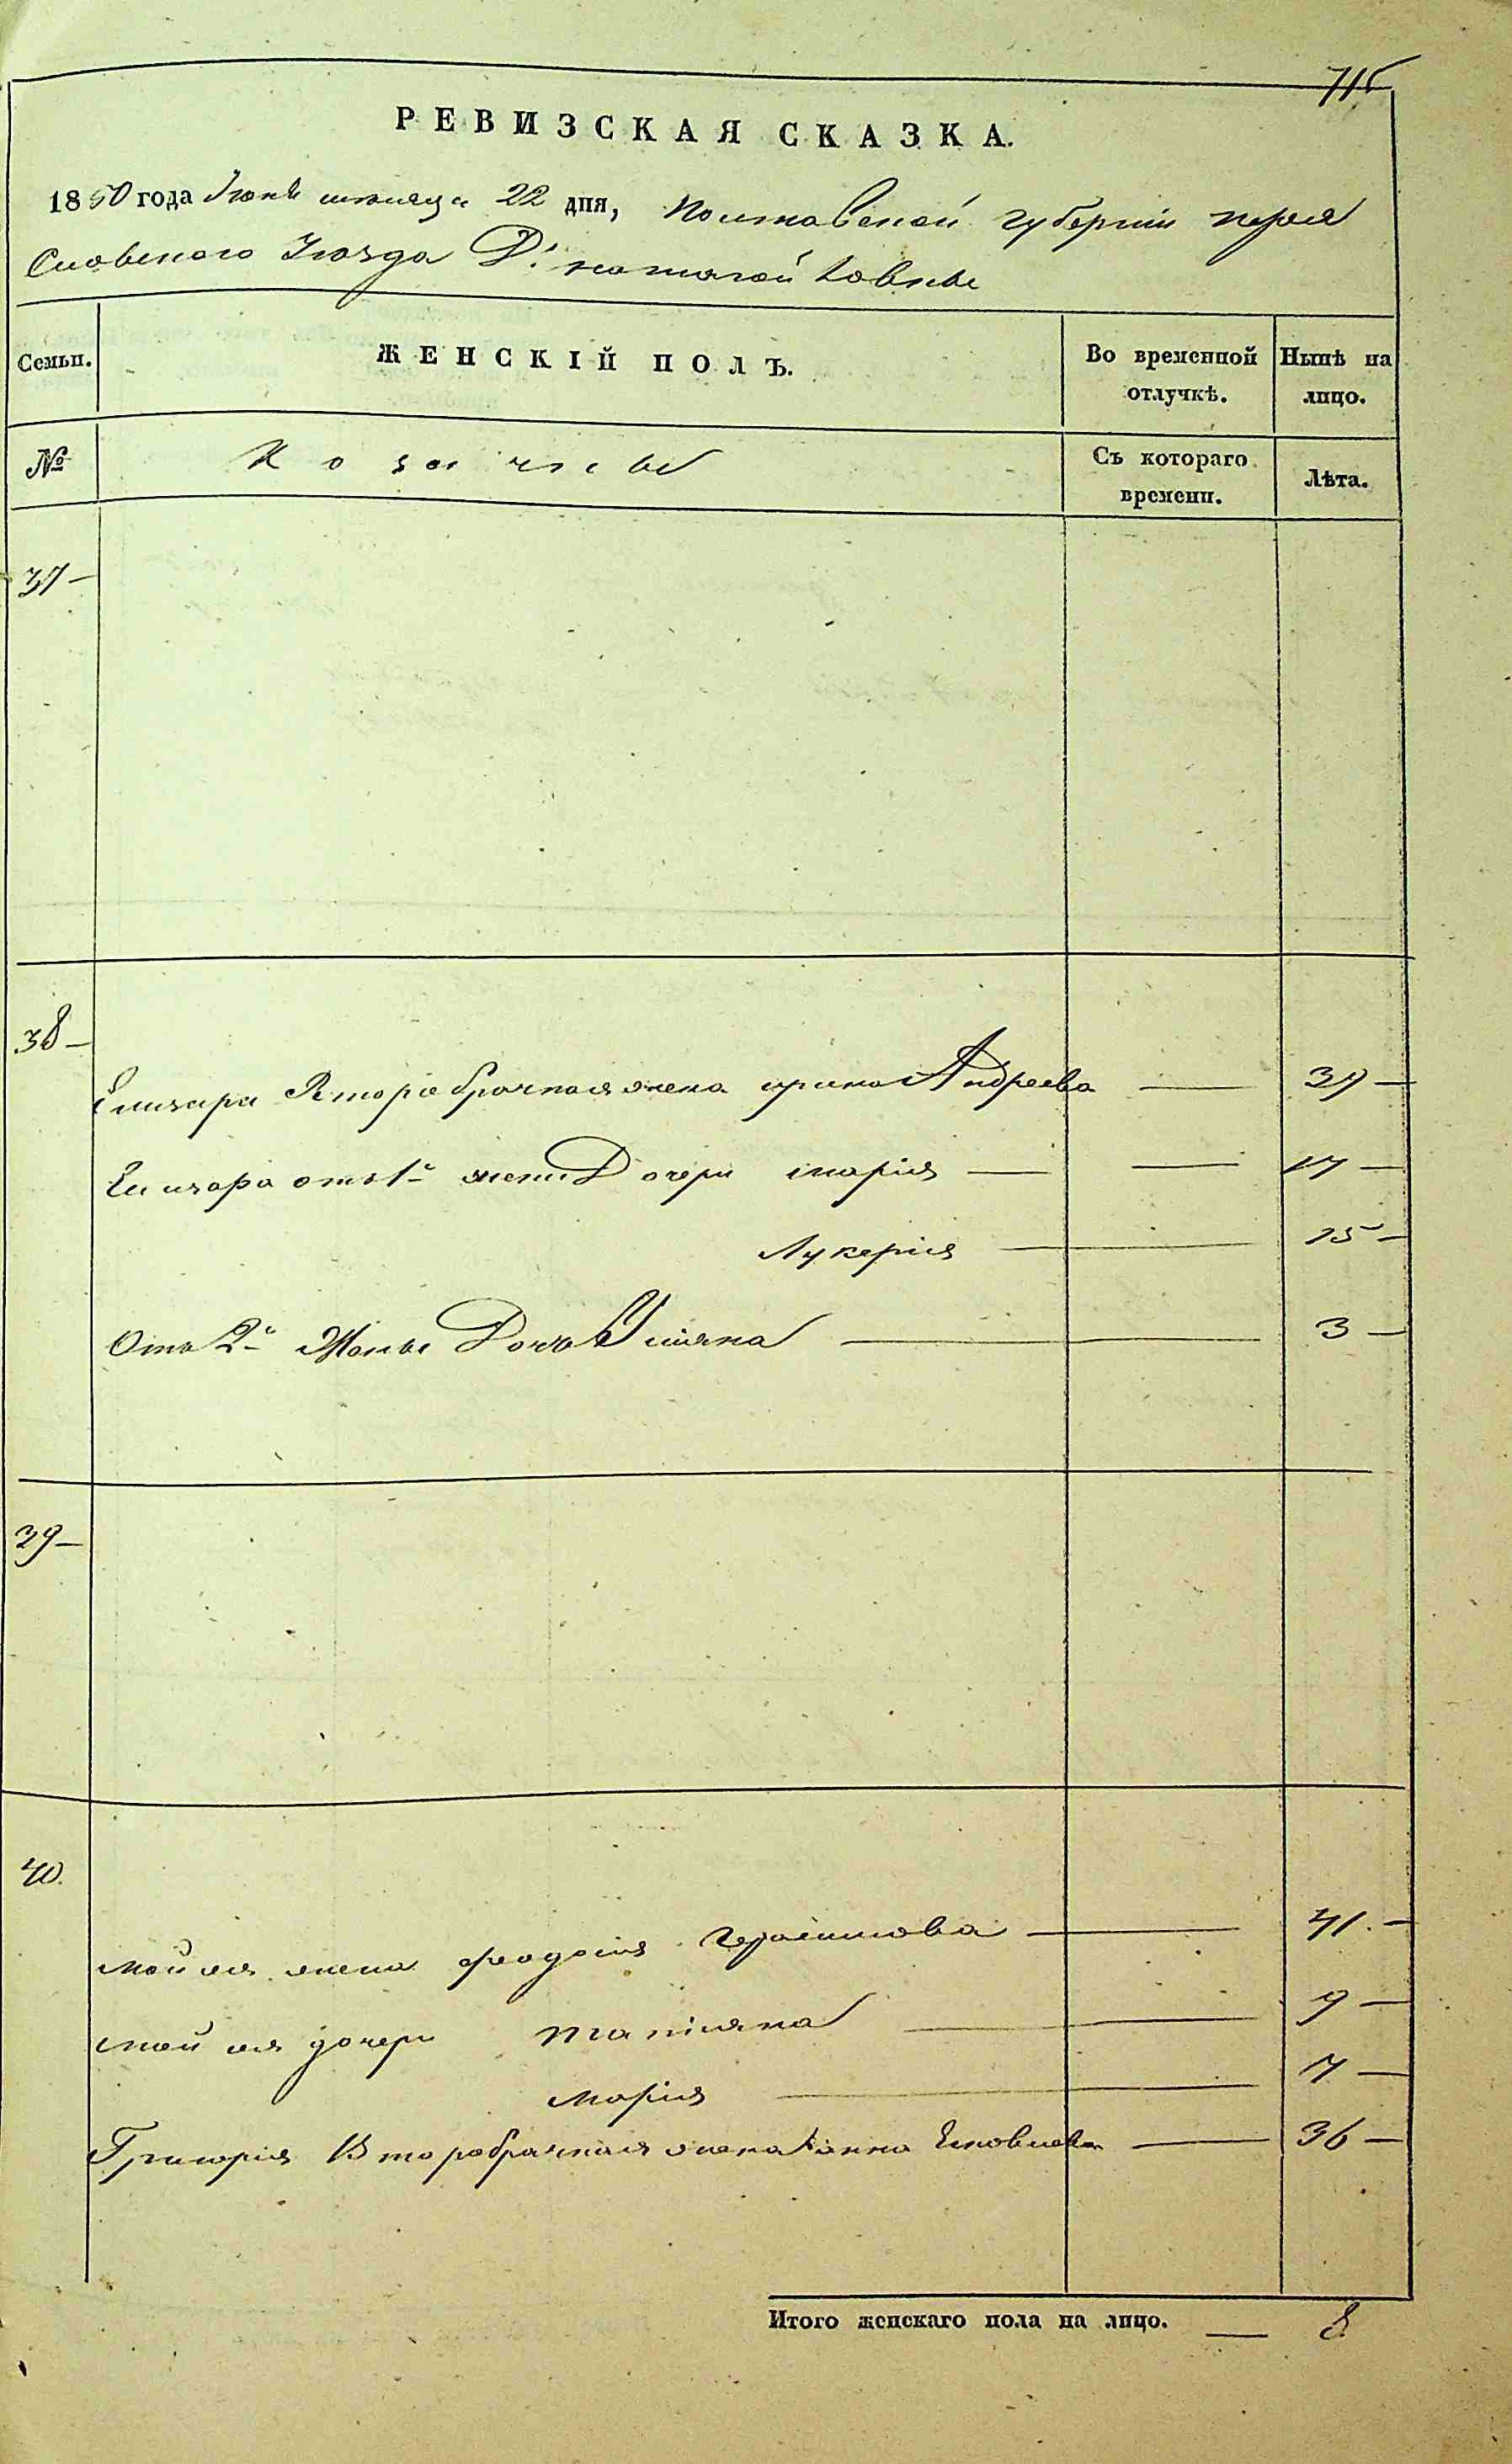 715
РЕВИЗСКАЯ СКАЗКА.
1850 года Июня месяца 22 дня, Полтавской губернии Перея
Славского Уезда Д.
Семьи. ЖЕНСКІЙ ПОЛЪ. Во временной отлучкѣ. Нынѣ на лицо.
№ Козачьей Съ котораго времени. Лѣта.
37 —
38 —
Елизара Вторobрачная жена Ирина Андреева — 39 —
Елизара отъ 1й жены Дочери Марія — — 17 —
Лукерія — 15 —
Отъ 2й Жены Дочь Уліяна — 3 —
39 —
40.
жена Феодосия Герасимова — 41. —
дочери Татіяна — 9 —
Марія — 7 —
Григорія Второбрачная жена Анна Яковлева — 36 —
Итого женскаго пола на лицо. — 8